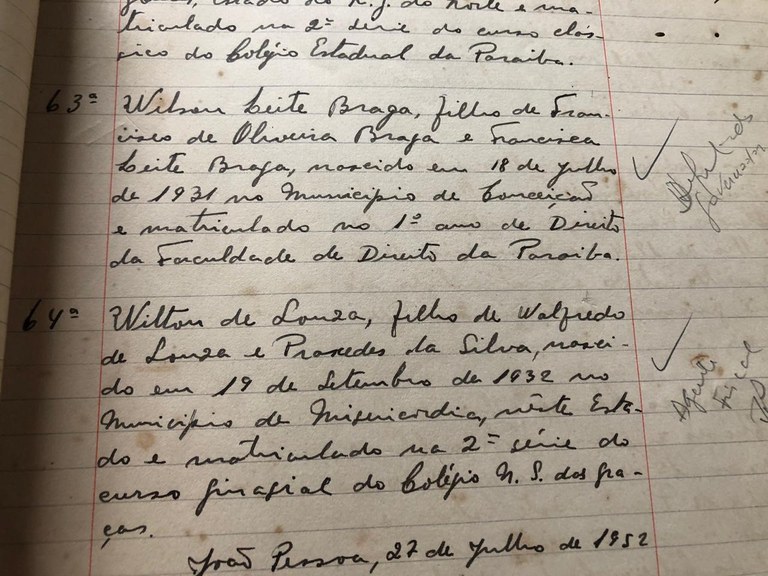 Estado do R. G. do Norte e ma-
triculado na 2ª série do curso clás-
sico do Colégio Estadual da Paraiba.
63ª Wilson Leite Braga, filho de Fran-
cisco de Oliveira Braga e Francisca
Leite Braga, nascido em 18 de Julho
de 1931 no Municipio de Conceição
e matriculado no 1º ano de Direito
da Faculdade de Direito da Paraiba.
64ª Wilton de Souza, filho de Walfredo
de Souza e Praxedes da Silva, nasci-
do em 19 de Setembro de 1932 no
Municipio de Misericordia, nêste Esta-
do e matriculado na 2ª série do
curso ginasial do Colégio N. S. das Gra-
ças.
João Pessoa, 27 de Julho de 1952
Deputado
Governador
Agente
Fiscal